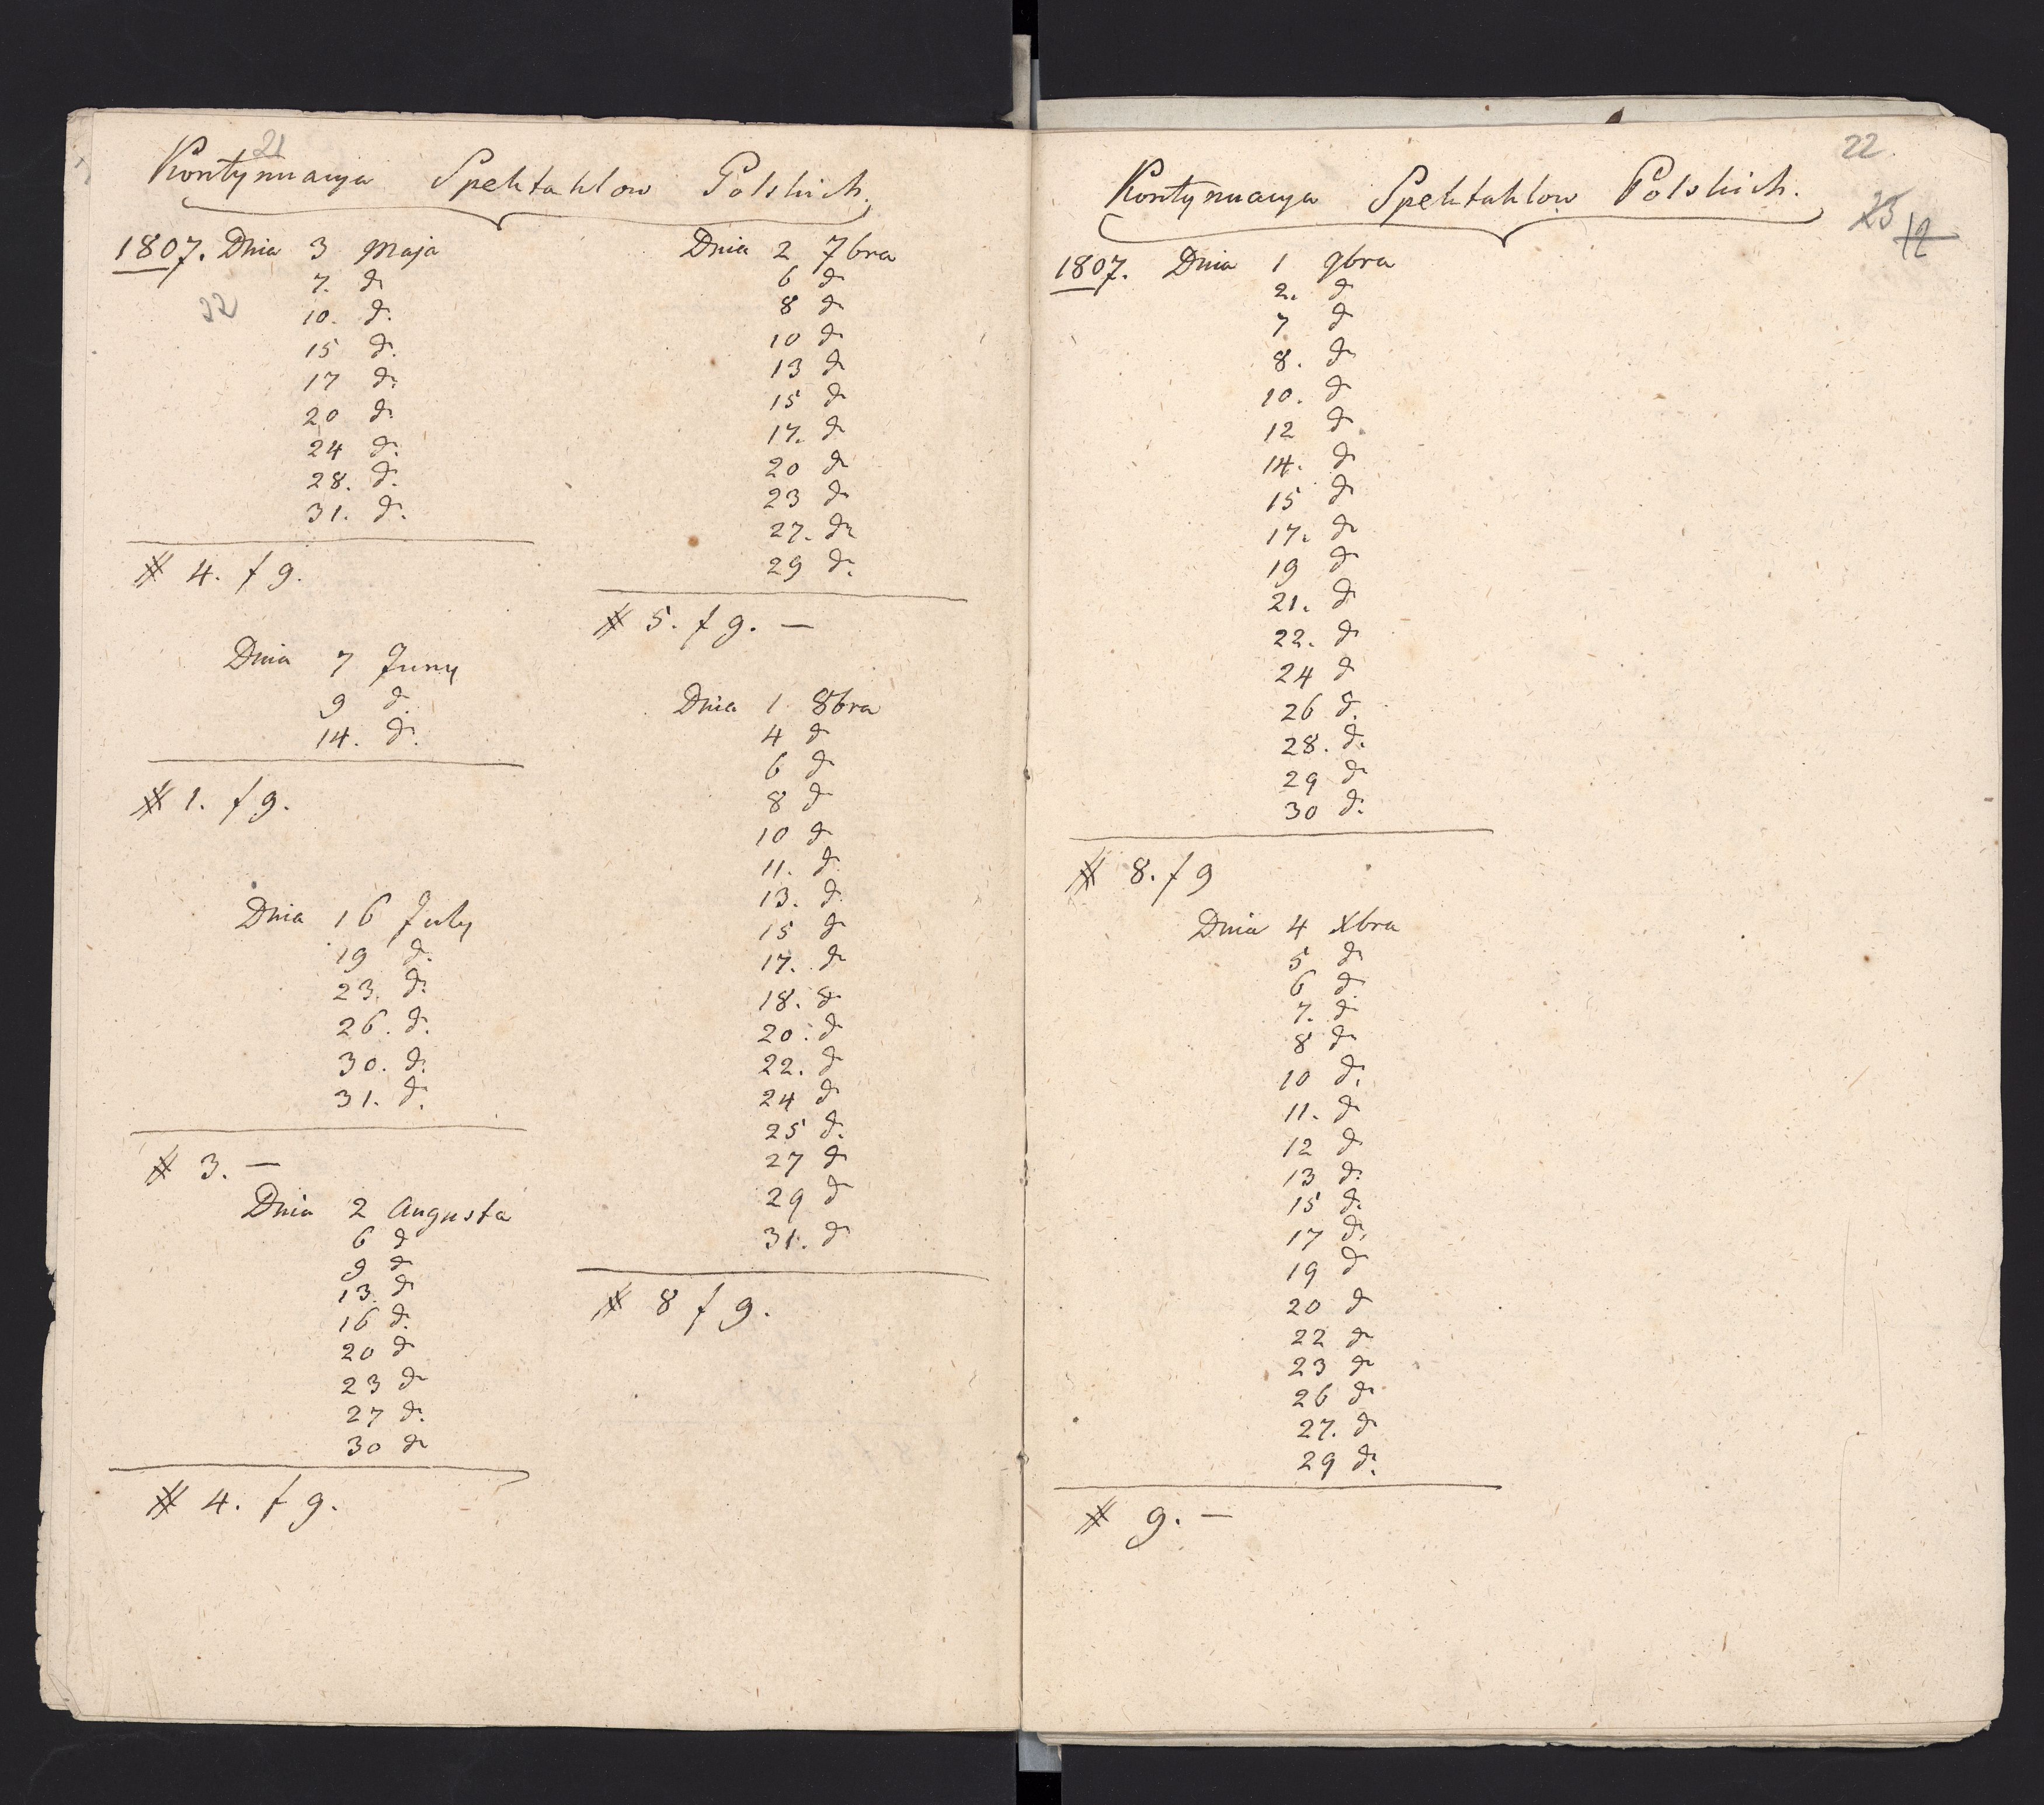 21
Kontynuacya Spektaklow Polskich.
1807. Dnia 3 Maja
7. d
32
10. d.
15 d.
17 d.
20 d.
24 d.
28. d.
31. d.
# 4. f 9.
Dnia 7 Juny
9 d.
14. d.
# 1. f 9.
Dnia 16 July
19 d.
23. d.
26. d.
30. d.
31. d.
# 3. —
Dnia 2 Augusta
6 d
9 d
13. d
16 d.
20 d
23 d
27 d.
30 d
# 4. f 9.
Dnia 2 7bra
6 d
8 d
10 d
13 d
15 d
17. d
20 d
23 d
27. d
29 d.
# 5. f 9. —
Dnia 1 8bra
4 d
6 d
8 d
10 d
11. d
13. d
15 d
17. d
18. d
20. d
22. d
24 d
25 d.
27 d
29 d
31. d
# 8 f 9.
22
Kontynuacya Spektaklow Polskich.
25
12
1807. Dnia 1 9bra
2. d
7 d
8. d
10. d
12 d
14. d
15 d
17. d
19 d
21. d
22. d
24 d
26 d.
28. d.
29 d
30 d.
# 8. f 9
Dnia 4 Xbra
5 d
6 d.
7. d
8 d
10 d.
11. d
12 d
13 d.
15 d.
17 d.
19 d
20 d
22 d
23 d
26 d
27. d
29 d.
# 9. —